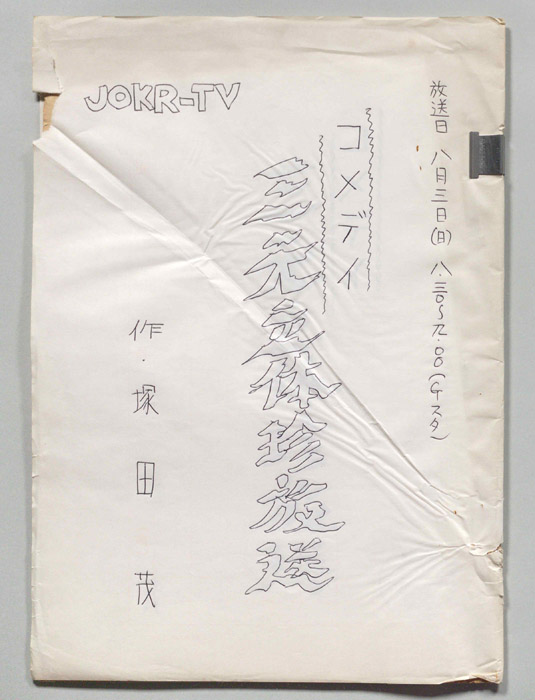 放送日 八月三日(日) 八.三〇〜九.〇〇(Gスタ)
JOKR-TV
コメディ
三元立体珍放送
作・塚田茂